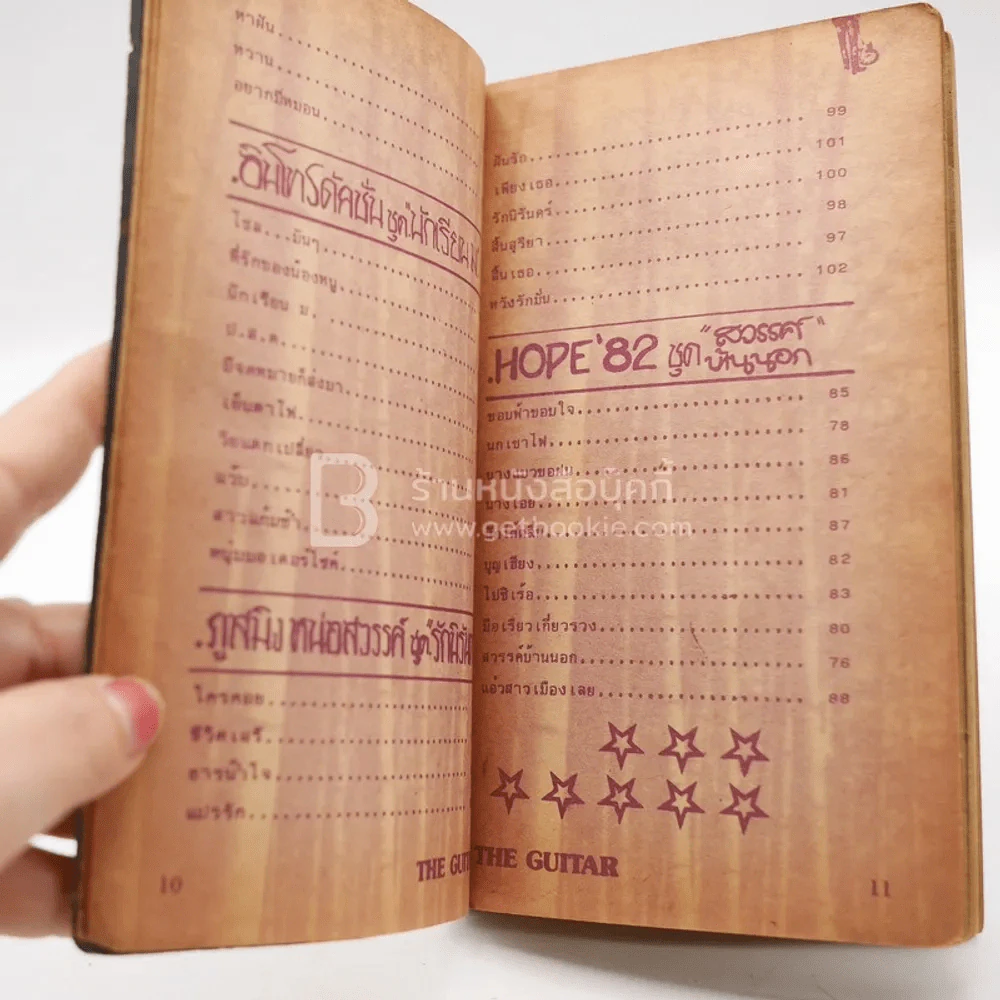 หาฝัน....................
หวาน....................
อยากมีหมอน....................
.อินโทรดักชั่น ชุด"นักเรียน
โซล...มันๆ....................
ที่รักของน้องหนู....................
นักเรียน ม. ....................
ป.ล.ด. ....................
มีจดหมายก็ส่งมา....................
เอ็นตาไฟ....................
แว้บ....................
สาวแก้มช้ำ....................
หนุ่มมอเตอร์ไซค์....................
.ภูสมิง หน่อสวรรค์ ชุด"รักนิรัน
ใครคอย....................
ชีวิตเสรี....................
ธารน้ำใจ....................
แปรรัก....................
THE GUI
10
ฝันรัก.................... 99
เพียงเธอ.................... 101
รักนิรันดร์.................... 100
สิ้นสุริยา.................... 98
สิ้นเธอ.................... 97
หวังรักมั่น.................... 102
.HOPE '82 ชุด "สวรรค์บ้านนอก"
ขอบฟ้าขอบใจ.................... 85
นกเขาไฟ.................... 78
นางแมวขอฝน.................... 86
นางเอย.................... 81
87
บุญเฮียง.................... 82
ไปซิเร้อ.................... 83
มือเรียวเกี่ยวรวง.................... 80
สวรรค์บ้านนอก.................... 76
แอ่วสาวเมืองเลย.................... 88
THE GUITAR
11
B ร้านหนังสือบุ๊คกี้
www.getbookie.com